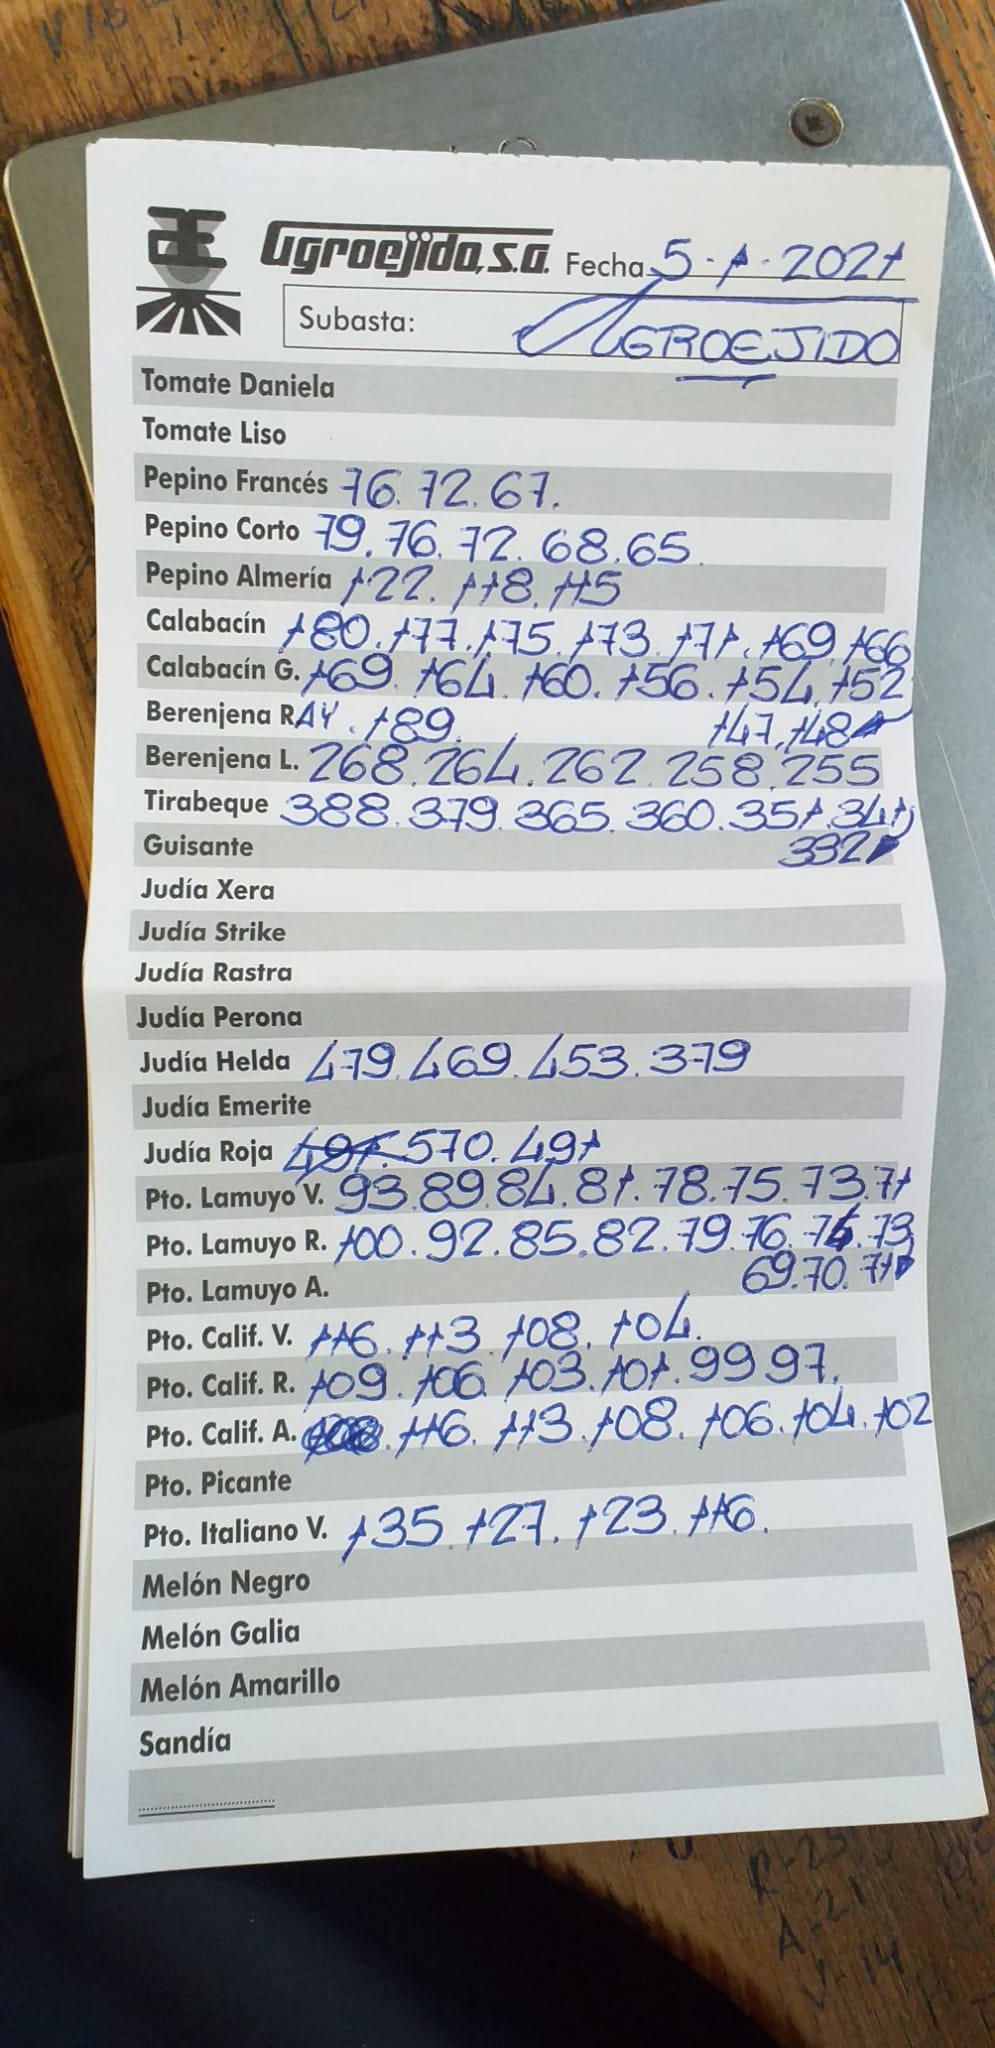 Agroejido, s.a. Fecha 5-1-2021
Subasta: AGROEJIDO
Tomate Daniela
Tomate Liso
Pepino Francés 76. 72. 67.
Pepino Corto 79. 76. 72. 68. 65.
Pepino Almería 122. 118. 115
Calabacín 180. 177. 175. 173. 171. 169. 166
Calabacín G. 169. 164. 160. 156. 154. 152
147. 148
Berenjena RAY. 189.
Berenjena L. 268. 264. 262. 258. 255
Tirabeque 388. 379. 365. 360. 351. 341
332
Guisante
Judía Xera
Judía Strike
Judía Rastra
Judía Perona
Judía Helda 479. 469. 453. 379
Judía Emerite
Judía Roja 491. 570. 491
Pto. Lamuyo V. 93. 89. 84. 81. 78. 75. 73. 71
Pto. Lamuyo R. 100. 92. 85. 82. 79. 76. 75. 73
69. 70. 71
Pto. Lamuyo A.
Pto. Calif. V. 116. 113. 108. 104.
Pto. Calif. R. 109. 106. 103. 101. 99 97.
Pto. Calif. A. 116. 113. 108. 106. 104. 102
Pto. Picante
Pto. Italiano V. 135. 127. 123. 116.
Melón Negro
Melón Galia
Melón Amarillo
Sandía
A-21
V-14